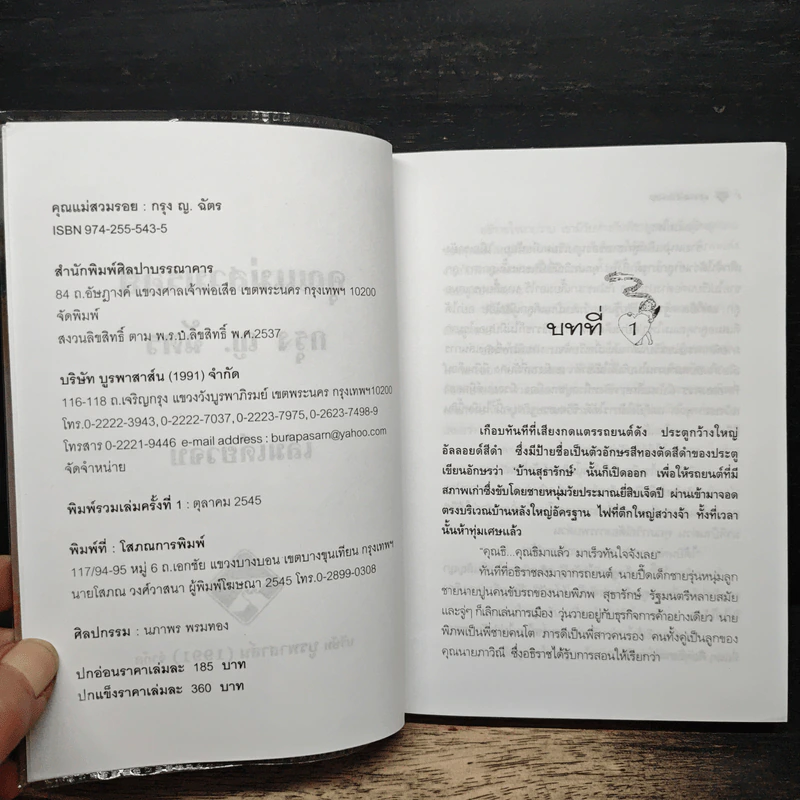 คุณแม่สวมรอย : กรุง ญ. ฉัตร
ISBN 974-255-543-5
สำนักพิมพ์ศิลปาบรรณาคาร
84 ถ.อัษฎางค์ แขวงศาลเจ้าพ่อเสือ เขตพระนคร กรุงเทพฯ 10200
จัดพิมพ์
สงวนลิขสิทธิ์ ตาม พ.ร.บ.ลิขสิทธิ์ พ.ศ.2537
บริษัท บูรพาสาส์น (1991) จำกัด
116-118 ถ.เจริญกรุง แขวงวังบูรพาภิรมย์ เขตพระนคร กรุงเทพฯ10200
โทร.0-2222-3943,0-2222-7037,0-2223-7975,0-2623-7498-9
โทรสาร 0-2221-9446 e-mail address : burapasarn@yahoo.com
จัดจำหน่าย
พิมพ์รวมเล่มครั้งที่ 1 : ตุลาคม 2545
พิมพ์ที่ : โสภณการพิมพ์
117/94-95 หมู่ 6 ถ.เอกชัย แขวงบางบอน เขตบางขุนเทียน กรุงเทพฯ
นายโสภณ วงศ์วาสนา ผู้พิมพ์โฆษณา 2545 โทร.0-2899-0308
ศิลปกรรม : นภาพร พรมทอง
ปกอ่อนราคาเล่มละ 185 บาท
ปกแข็งราคาเล่มละ 360 บาท
บทที่ 1
เกือบทันทีที่เสียงกดแตรรถยนต์ดัง ประตูกว้างใหญ่
อัลลอยด์สีดำ ซึ่งมีป้ายชื่อเป็นตัวอักษรสีทองตัดสีดำของประตู
เขียนอักษรว่า 'บ้านสุธารักษ์' นั้นก็เปิดออก เพื่อให้รถยนต์ที่มี
สภาพเก่าซึ่งขับโดยชายหนุ่มวัยประมาณยี่สิบเจ็ดปี ผ่านเข้ามาจอด
ตรงบริเวณบ้านหลังใหญ่อัครฐาน ไฟที่ตึกใหญ่สว่างจ้า ทั้งที่เวลา
นั้นห้าทุ่มเศษแล้ว
"คุณธิ...คุณธิมาแล้ว มาเร็วทันใจจังเลย"
ทันทีที่อธิราชลงมาจากรถยนต์ นายปิ๊ดเด็กชายรุ่นหนุ่มลูก
ชายนายปูนคนขับรถของนายพิภพ สุธารักษ์ รัฐมนตรีหลายสมัย
และจู่ๆ ก็เลิกเล่นการเมือง วุ่นวายอยู่กับธุรกิจการค้าอย่างเดียว นาย
พิภพเป็นพี่ชายคนโต ภารดีเป็นพี่สาวคนรอง คนทั้งคู่เป็นลูกของ
คุณนายภาวิณี ซึ่งอธิราชได้รับการสอนให้เรียกว่า